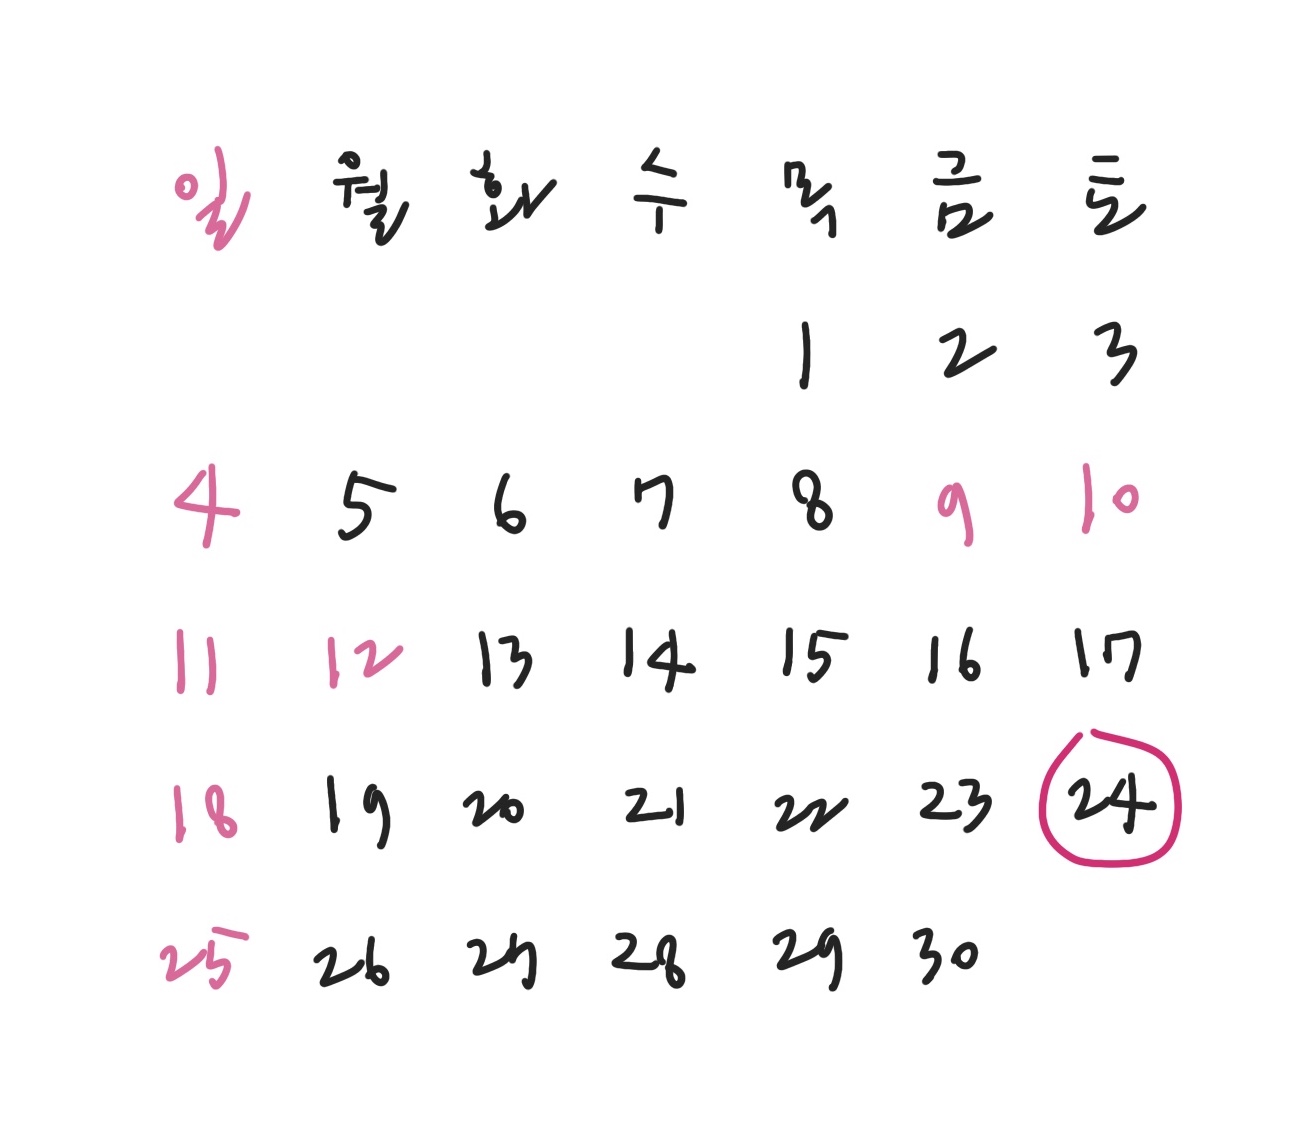 일 월 화 수 목 금 토
1 2 3
4 5 6 7 8 9 10
11 12 13 14 15 16 17
18 19 20 21 22 23 24
25 26 27 28 29 30